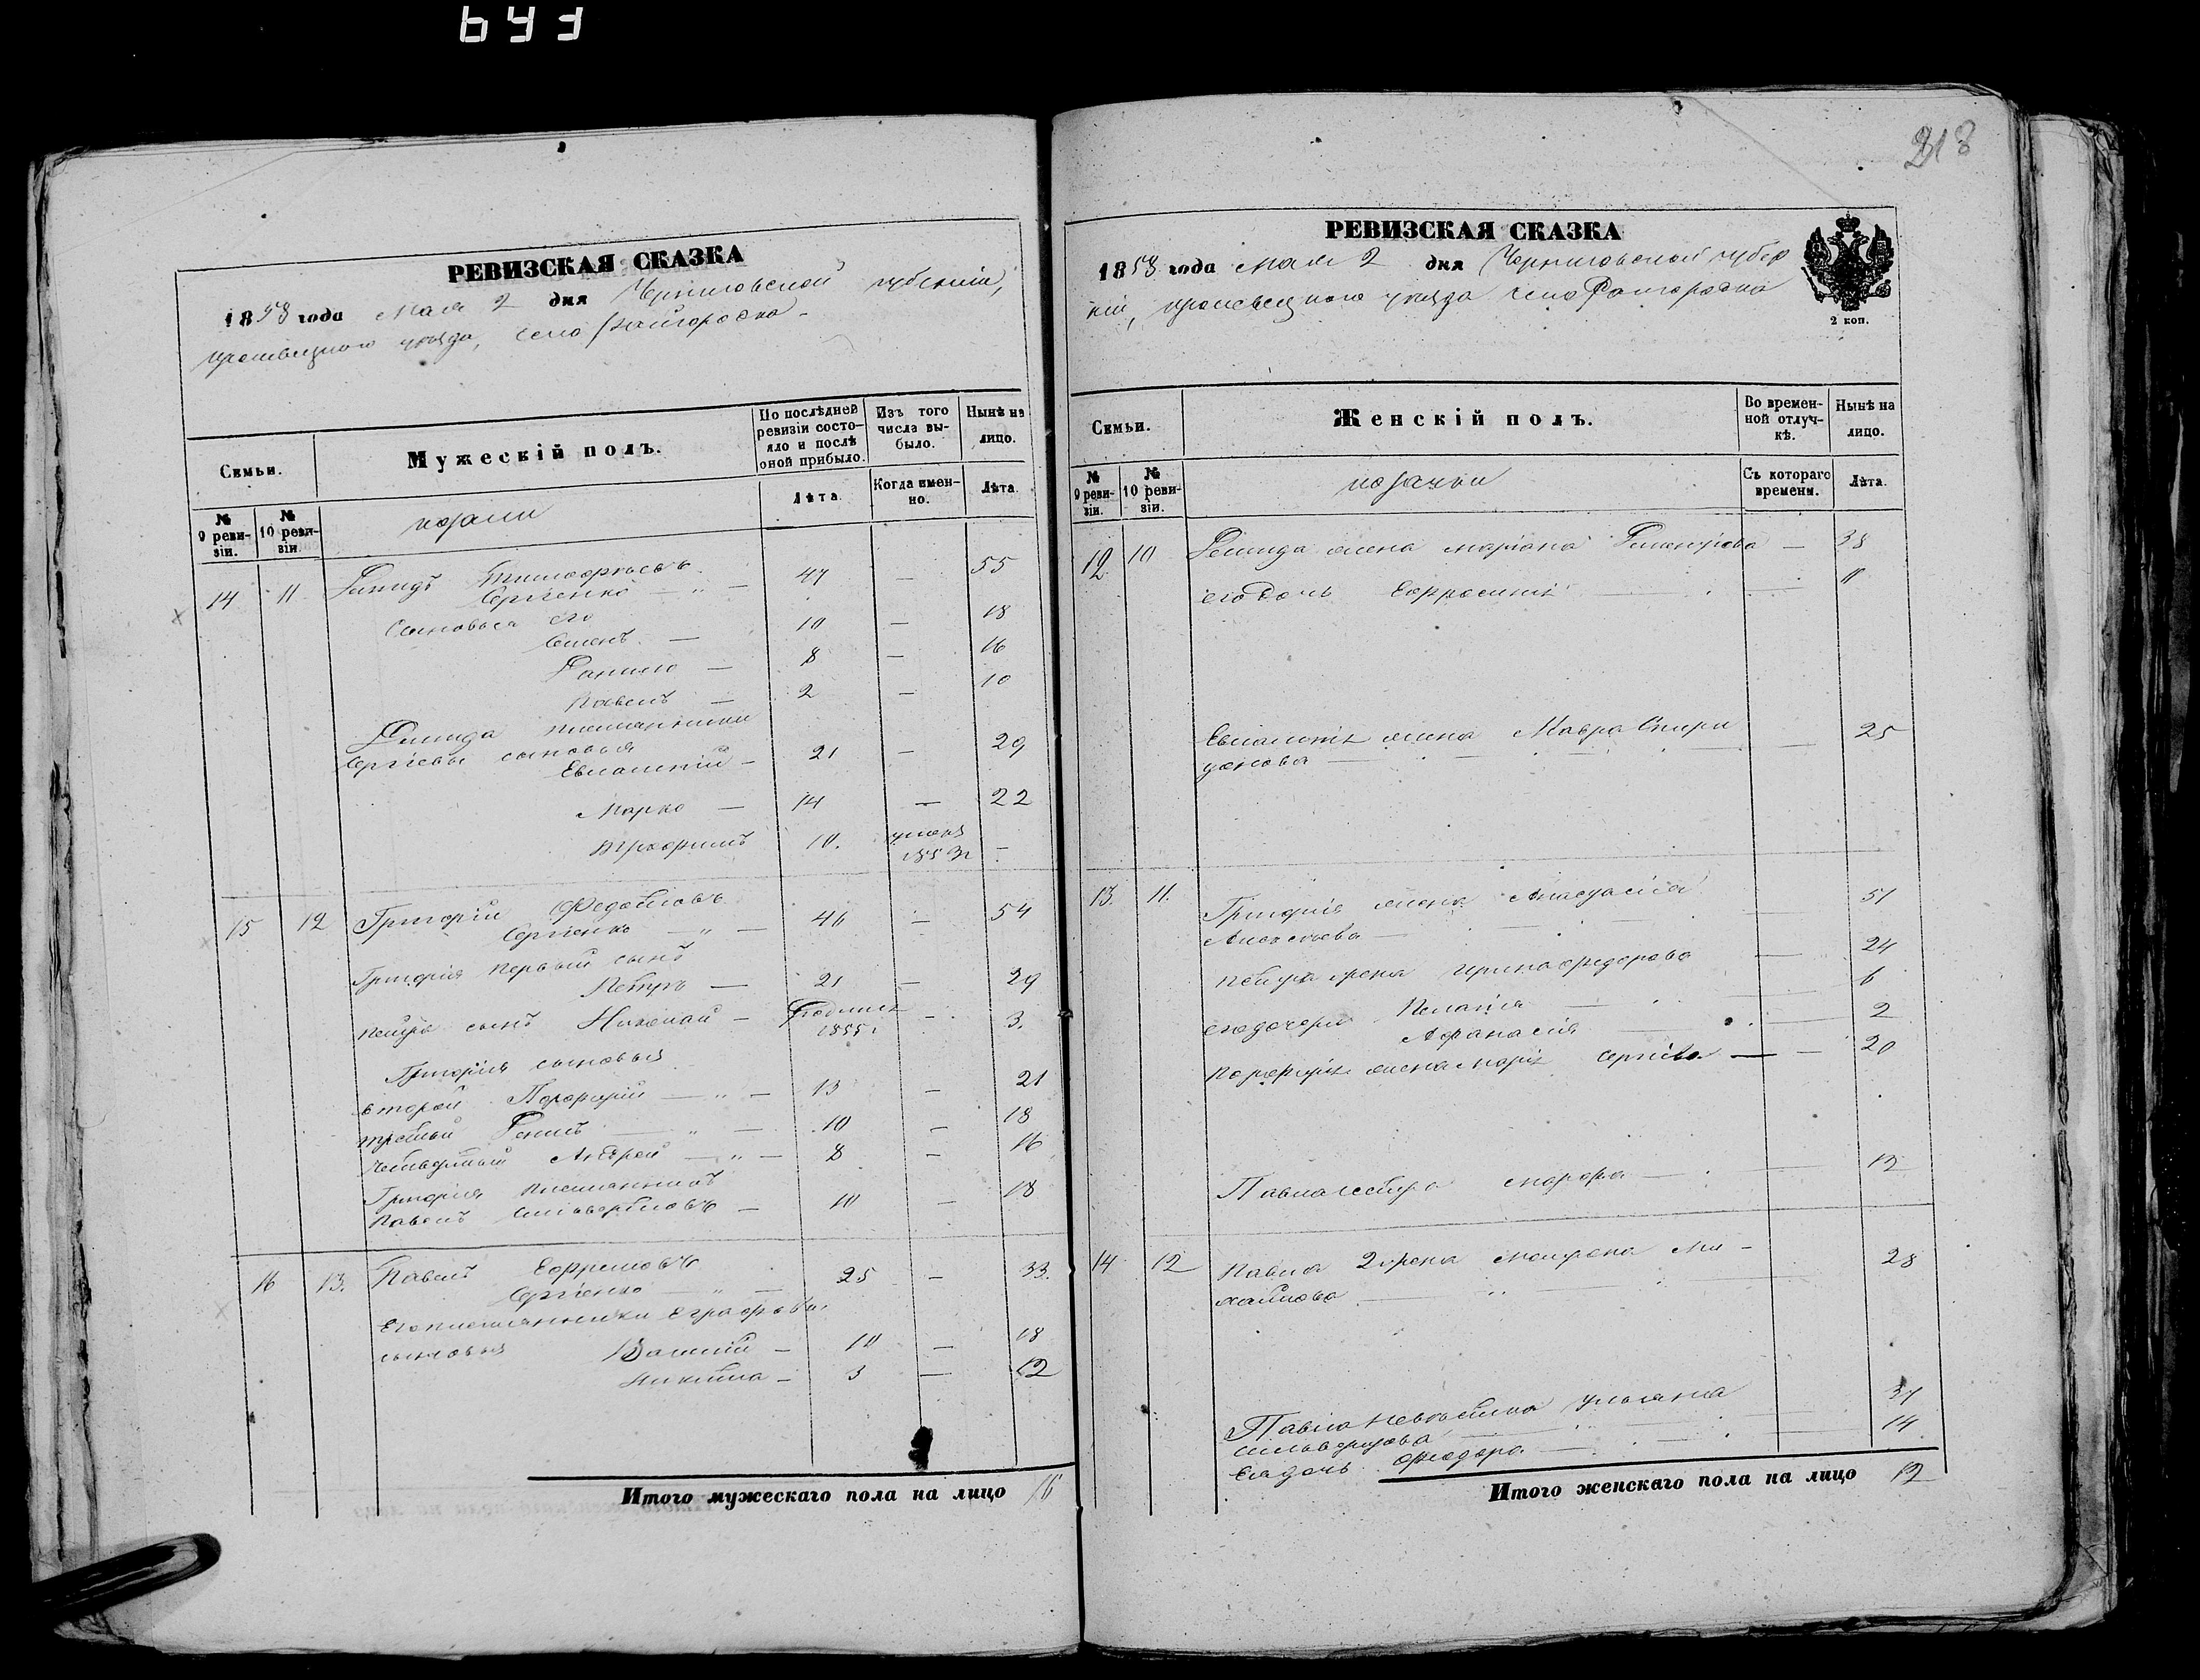 643
РЕВИЗСКАЯ СКАЗКА
1858 года Мая 2 дня Черниговской губерніи,
уезда, село
Семьи.
Мужескій полъ.
По послѣдней ревизіи состояло и послѣ оной прибыло.
Изъ того числа выбыло.
Нынѣ на лицо.
№ 9 ревизіи.
№ 10 ревизіи.
козаки
Лѣта.
Когда именно.
Лѣта.
14 11 Демидъ Тимофѣевъ
Сергіенко — " — 47 — 55
Сыновья его
Семенъ — 10 — 18
Данило — 8 — 16
Павелъ — 2 — 10
Демида племянники
Сергіевы сыновья
Евлампій — 21 — 29
Марко — 14 — 22
Трофимъ 10. умеръ 1853 г —
15 12 Григорій Федотовъ
Сергіенко — " — 46 — 54
Григорія первый сынъ
Петръ — 21 — 29
Петра сынъ Николай — родился 1855 г — 3.
Григорія сыновья
второй Порфирій — " — 13 — 21
третій Денисъ — " — 10 — 18
четвертый Андрей — " — 8 — 16
Григорія племянникъ
Павелъ — 10 — 18
16 13. Павелъ Ефремовъ
Сергіенко — " — 25 — 33.
Его племянники
сыновья Василій — 10 — 18
Никита — 3 — 12
Итого мужескаго пола на лицо 16
218
РЕВИЗСКАЯ СКАЗКА
1858 года Мая 2 дня Черниговской губер
ніи, уезда село
2 коп.
Семьи.
Женскій полъ.
Во временной отлучкѣ.
Нынѣ на лицо.
№ 9 ревизіи.
№ 10 ревизіи.
козачки
Съ котораго времени.
Лѣта.
12 10 Демида жена Маріана — 38
его дочь Ефросинія — 11
Евлампія жена Мавра Спири
донова — 25
13. 11. Григорія жена Анастасія
Алексѣева — 51
Петра жена Ирина Федорова — 24
его дочери Пелагія — 6
Афанасія — 2
Порфирія жена Марія Сергіева — 20
Павла сестра — 12
14 12 Павла 2 жена Матрена Ми-
хайлова — 28
Павла невѣстка Ульяна
— 31
Ея дочь Феодора — 14
Итого женскаго пола на лицо 12